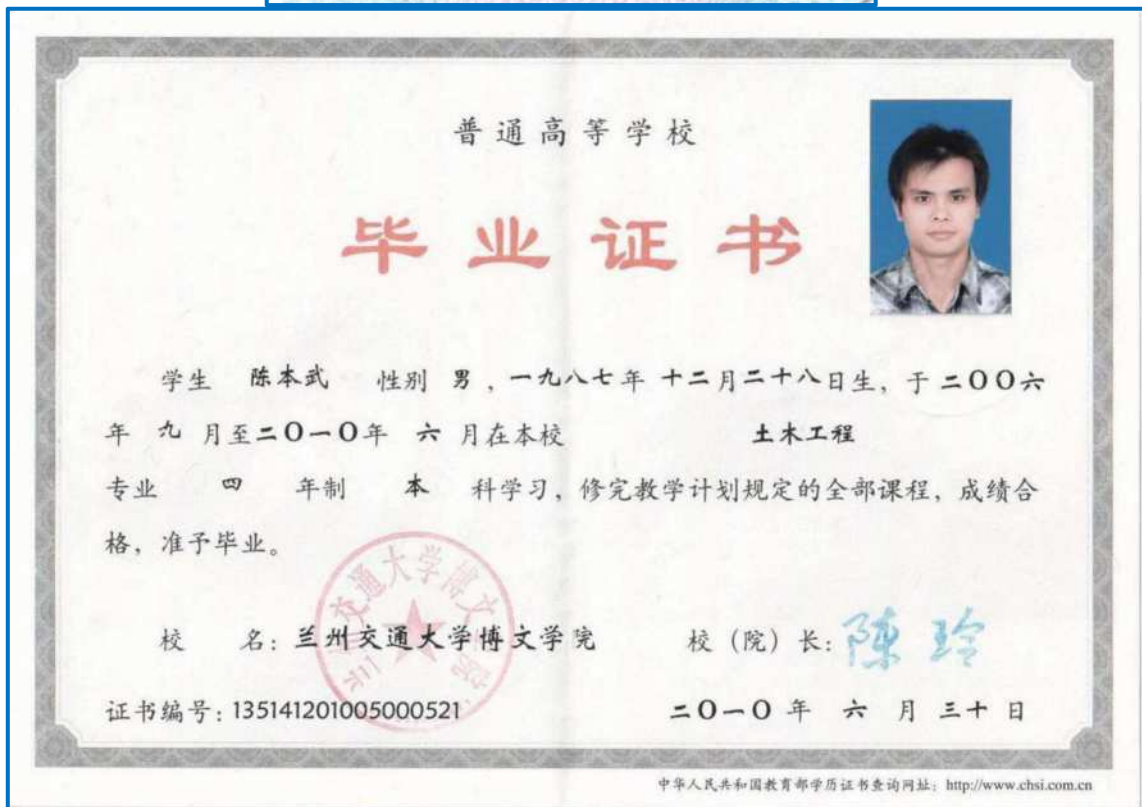 普通高等学校
毕业证书
学生 陈本武 性别 男，一九八七年 十二月二十八日生，于 二〇〇六
年 九 月至二〇一〇年 六 月在本校 土木工程
专业 四 年制 本 科学习，修完教学计划规定的全部课程，成绩合
格，准予毕业。
兰州交通大学博文学院
校 名：兰州交通大学博文学院 校（院）长：陈玲
证书编号：135141201005000521 二〇一〇 年 六 月 三十 日
中华人民共和国教育部学历证书查询网址：http://www.chsi.com.cn